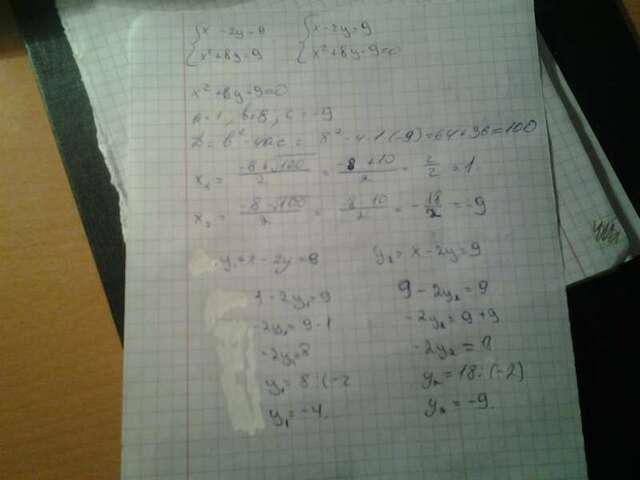 {x - 2y = 9 {x - 2y = 9
{x² + 8y = 9 {x² + 8y - 9 = 0
x² + 8y - 9 = 0
a = 1, b = 8, c = -9
D = b² - 4ac = 8² - 4·1·(-9) = 64 + 36 = 100
x₁ = (-8 + √100)/2 = (-8 + 10)/2 = 2/2 = 1
x₂ = (-8 - √100)/2 = (-8 - 10)/2 = -18/2 = -9
y₁ = x - 2y = 9 y₂ = x - 2y = 9
1 - 2y₁ = 9 9 - 2y₂ = 9
-2y₁ = 9 - 1 -2y₂ = 9 + 9
-2y₁ = 8 -2y₂ =
y₁ = 8 : (-2 y₂ = 18 : (-2)
y₁ = -4. y₂ = -9.